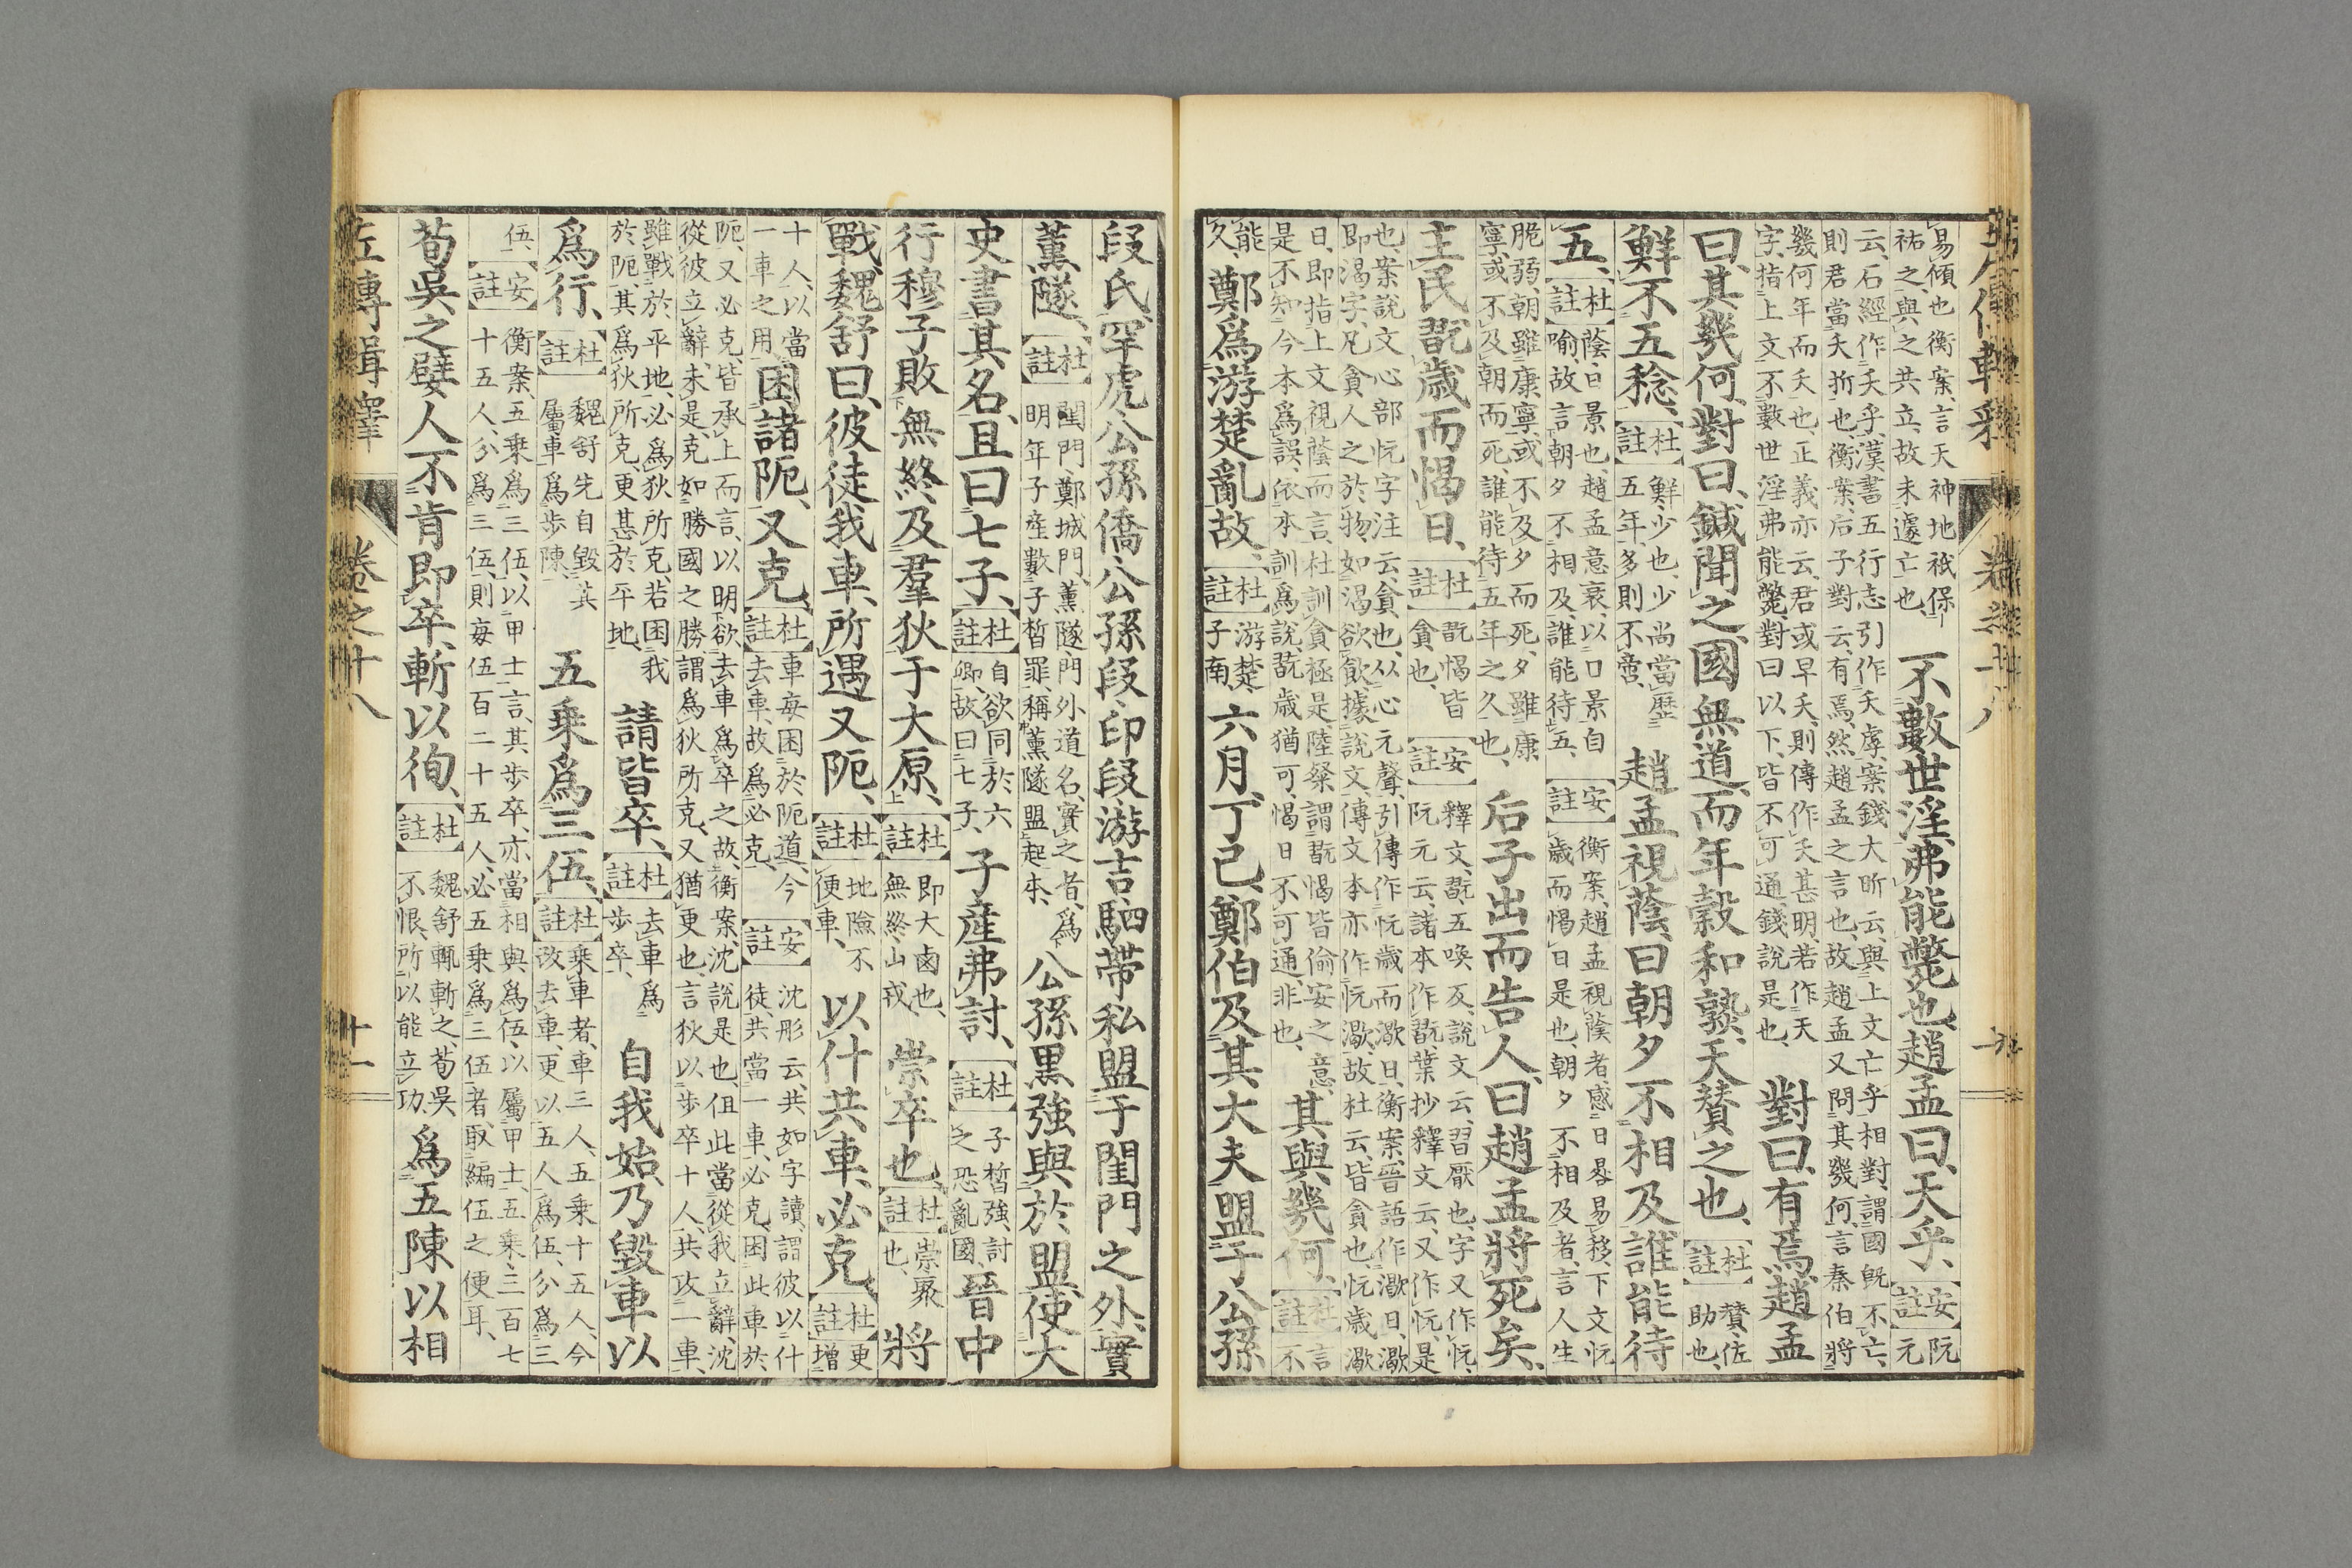 易傾也衡案言天神地祇保
祐之與之共立故未遽亡也
不數世淫弗能斃也趙孟曰天乎
安註
阮
元
云石經作夭乎漢書五行志引作夭虖案錢大昕云與上文亡乎相對謂國既不亡
則君當夭折也衡案后子對云有焉然趙孟之言也故趙孟又問其幾何言秦伯將
幾何年而夭也正義亦云君或早夭則傳作夭甚明若作天
字指上文不數世淫弗能斃對曰以下皆不可通錢說是也
對曰有焉趙孟
曰其幾何對曰鍼聞之國無道而年穀和熟天贊之也
杜註
贊佐
助也
鮮不五稔
杜註
鮮少也少尚當歷
五年多則不啻
趙孟視蔭曰朝夕不相及誰能待
五
杜註
蔭日景也趙孟意衰以日景自
喻故言朝夕不相及誰能待五
安註
衡案趙孟視蔭者感日晷易移下文忨
歲而愒日是也朝夕不相及者言人生
脆弱朝雖康寧或不及夕而死夕雖康
寧或不及朝而死誰能待五年之久也
后子出而告人曰趙孟將死矣
主民翫歲而愒日
杜註
翫愒皆
貪也
安註
釋文翫五喚反說文云習厭也字又作忨
阮元云諸本作翫葉抄釋文云又作忨是
也案說文心部忨字注云貪也从心元聲引傳作忨歲而㵣日衡案晉語作㵣日㵣
即渴字兄貪人之於物如渴欲飲據說文傳文本亦作忨㵣故杜云皆貪也忨歲㵣
日即指上文視蔭而言杜訓貪極是陸粲謂翫愒皆偷安之意
是不知今本為誤依本訓為說翫歲猶可愒日不可通非也
其與幾何
杜註
言
不
能
久
鄭為游楚亂故
杜註
游楚
子南
六月丁巳鄭伯及其大夫盟于公孫
段氏罕虎公孫僑公孫段印段游吉駟帶私盟于閨門之外實
薰隧
杜註
閨門鄭城門薰隧門外道名實之者為
明年子產數子皙罪稱薰隧盟起本
公孫黑強與於盟使大
史書其名且曰七子
杜註
自欲同於六
卿故曰七子
子產弗討
杜註
子皙強討
之恐亂國
晉中
行穆子敗無終及羣狄于大原
杜註
即大鹵也
無終山戎
崇卒也
杜註
崇聚
也
將
戰魏舒曰彼徒我車所遇又阨
杜註
地險不
便車
以什共車必克
杜註
更
增
十人以當
一車之用
困諸阨又克
杜註
車每困於阨道今
去車故為必克
安註
沈彤云共如字讀謂彼以什
徒共當一車必克困此車於
阨又必克皆承上而言以明欲去車為卒之故衡案沈說是也但此當從我立辭沈
從彼立辭未是克如勝國之勝謂為狄所克又猶更也言狄以步卒十人共攻一車
雖戰於平地必為狄所克若困我
於阨其為狄所克更甚於平地
請皆卒
杜註
去車為
步卒
自我始乃毀車以
為行
杜註
魏舒先自毀其
屬車為步陳
五乘為三伍
杜註
乘車者車三人五乘十五人今
改去車更以五人為伍分為三
伍
安註
衡案五乘為三伍以甲士言其步卒亦當相與為伍以屬甲士五乘三百七
十五人分為三伍則每伍百二十五人必五乘為三伍者取編伍之便耳
荀吳之嬖人不肯即卒斬以徇
杜註
魏舒輒斬之荀吳
不恨所以能立功
為五陳以相
左傳輯釋
卷之十八
十一